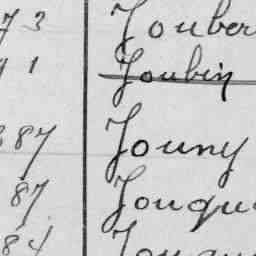 73 Jouber
1 Joubin
87 Jouny
87 Jouqu
84 Jouqu